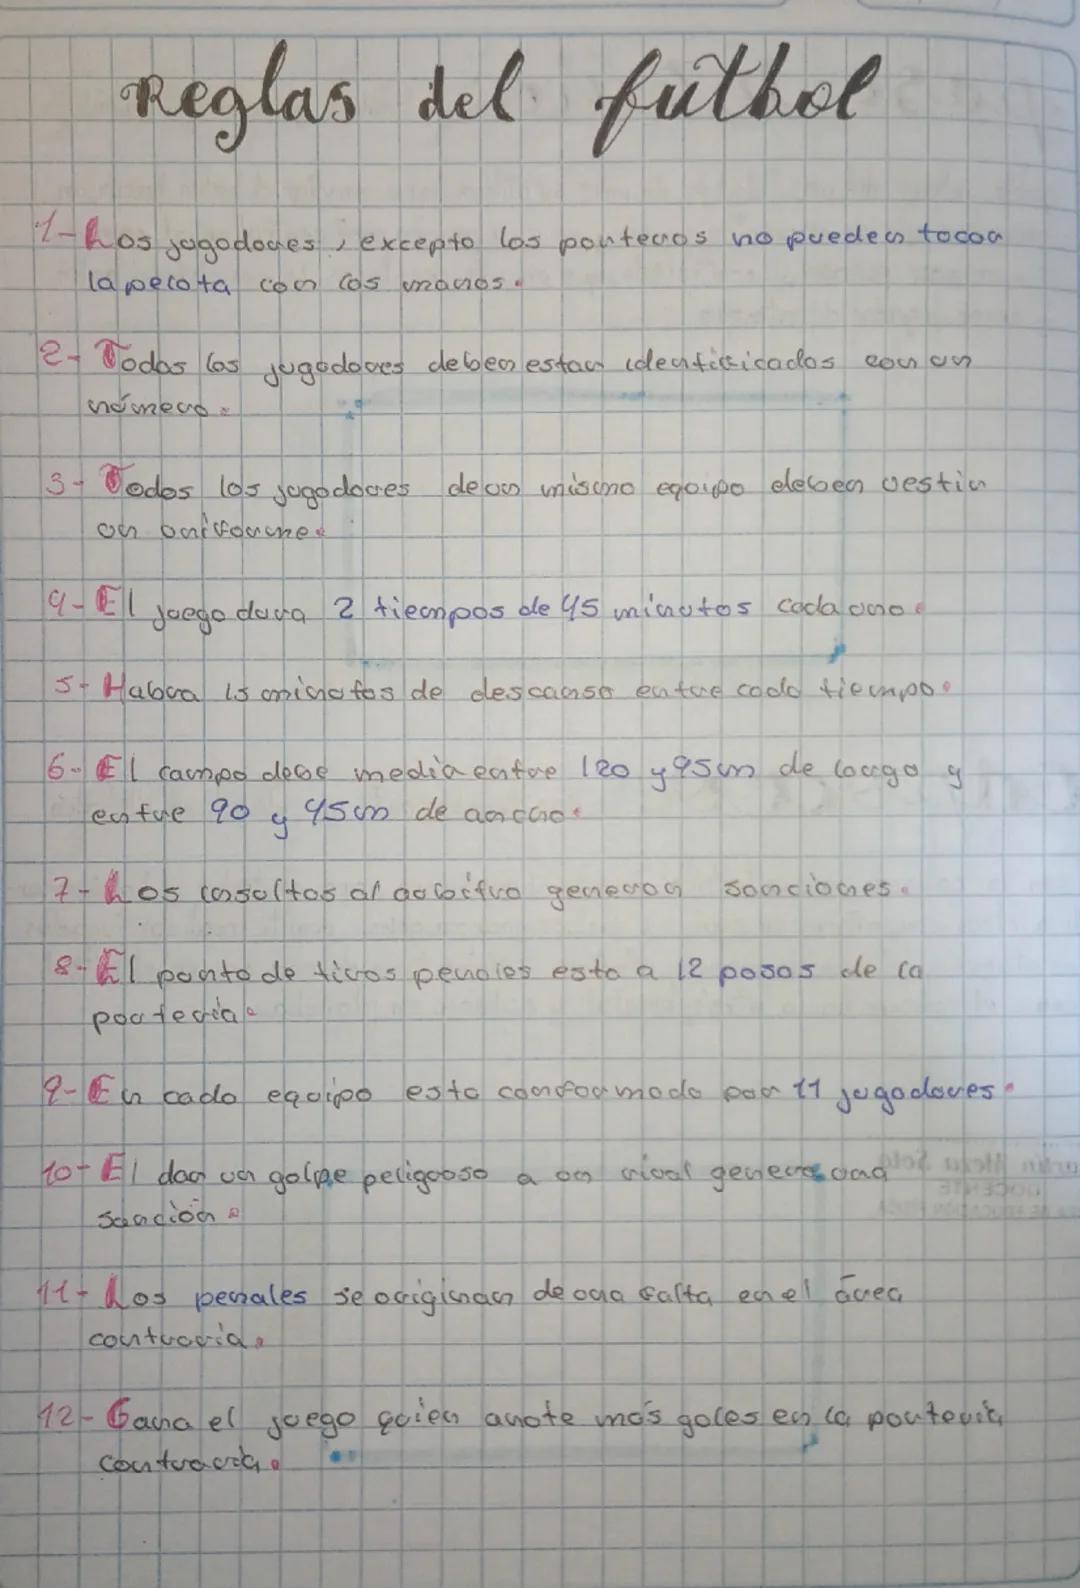 Reglas del futbol
1- Los jugadores, excepto los porteros no pueden tocar
la pelota con las manos.
2- Todos los jugadores deben estar identificados con un
número.
3- Todos los jugadores de un mismo equipo deben vestir
un uniforme.
4- El juego dura 2 tiempos de 45 minutos cada uno.
5- Habra 15 minutos de descanso entre cada tiempo.
6- El campo debe media entre 120 y 95m de largo y
entre 90 y 45m de ancho.
7- Los insultos al arbitro generan sanciones.
8- El punto de tiros penales esta a 12 pasos de la
porteria.
9- En cada equipo esta conformado por 11 jugadores.
10- El dar un golpe peligroso a un rival genera una
sanción.
11- Los penales se originan de una falta en el área
contraria.
12- Gana el juego quien anote más goles en la portería
contraria.